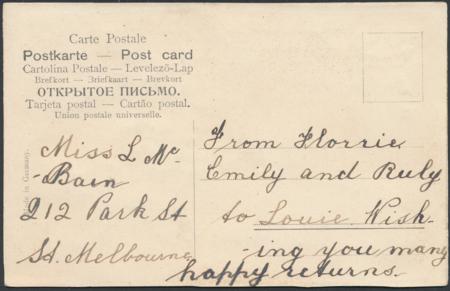 Carte Postale
Postkarte — Post card
Cartolina Postale — Levelező-Lap
Brefkort — Briefkaart — Brevkort
ОТКРЫТОЕ ПИСЬМО.
Tarjeta postal — Cartão postal.
Union postale universelle.
Made in Germany.
Miss L Mc
-Bain
212 Park St
St. Melbourne
From Florrie
Emily and Ruly
to Louie Wish-
-ing you many
happy returns.